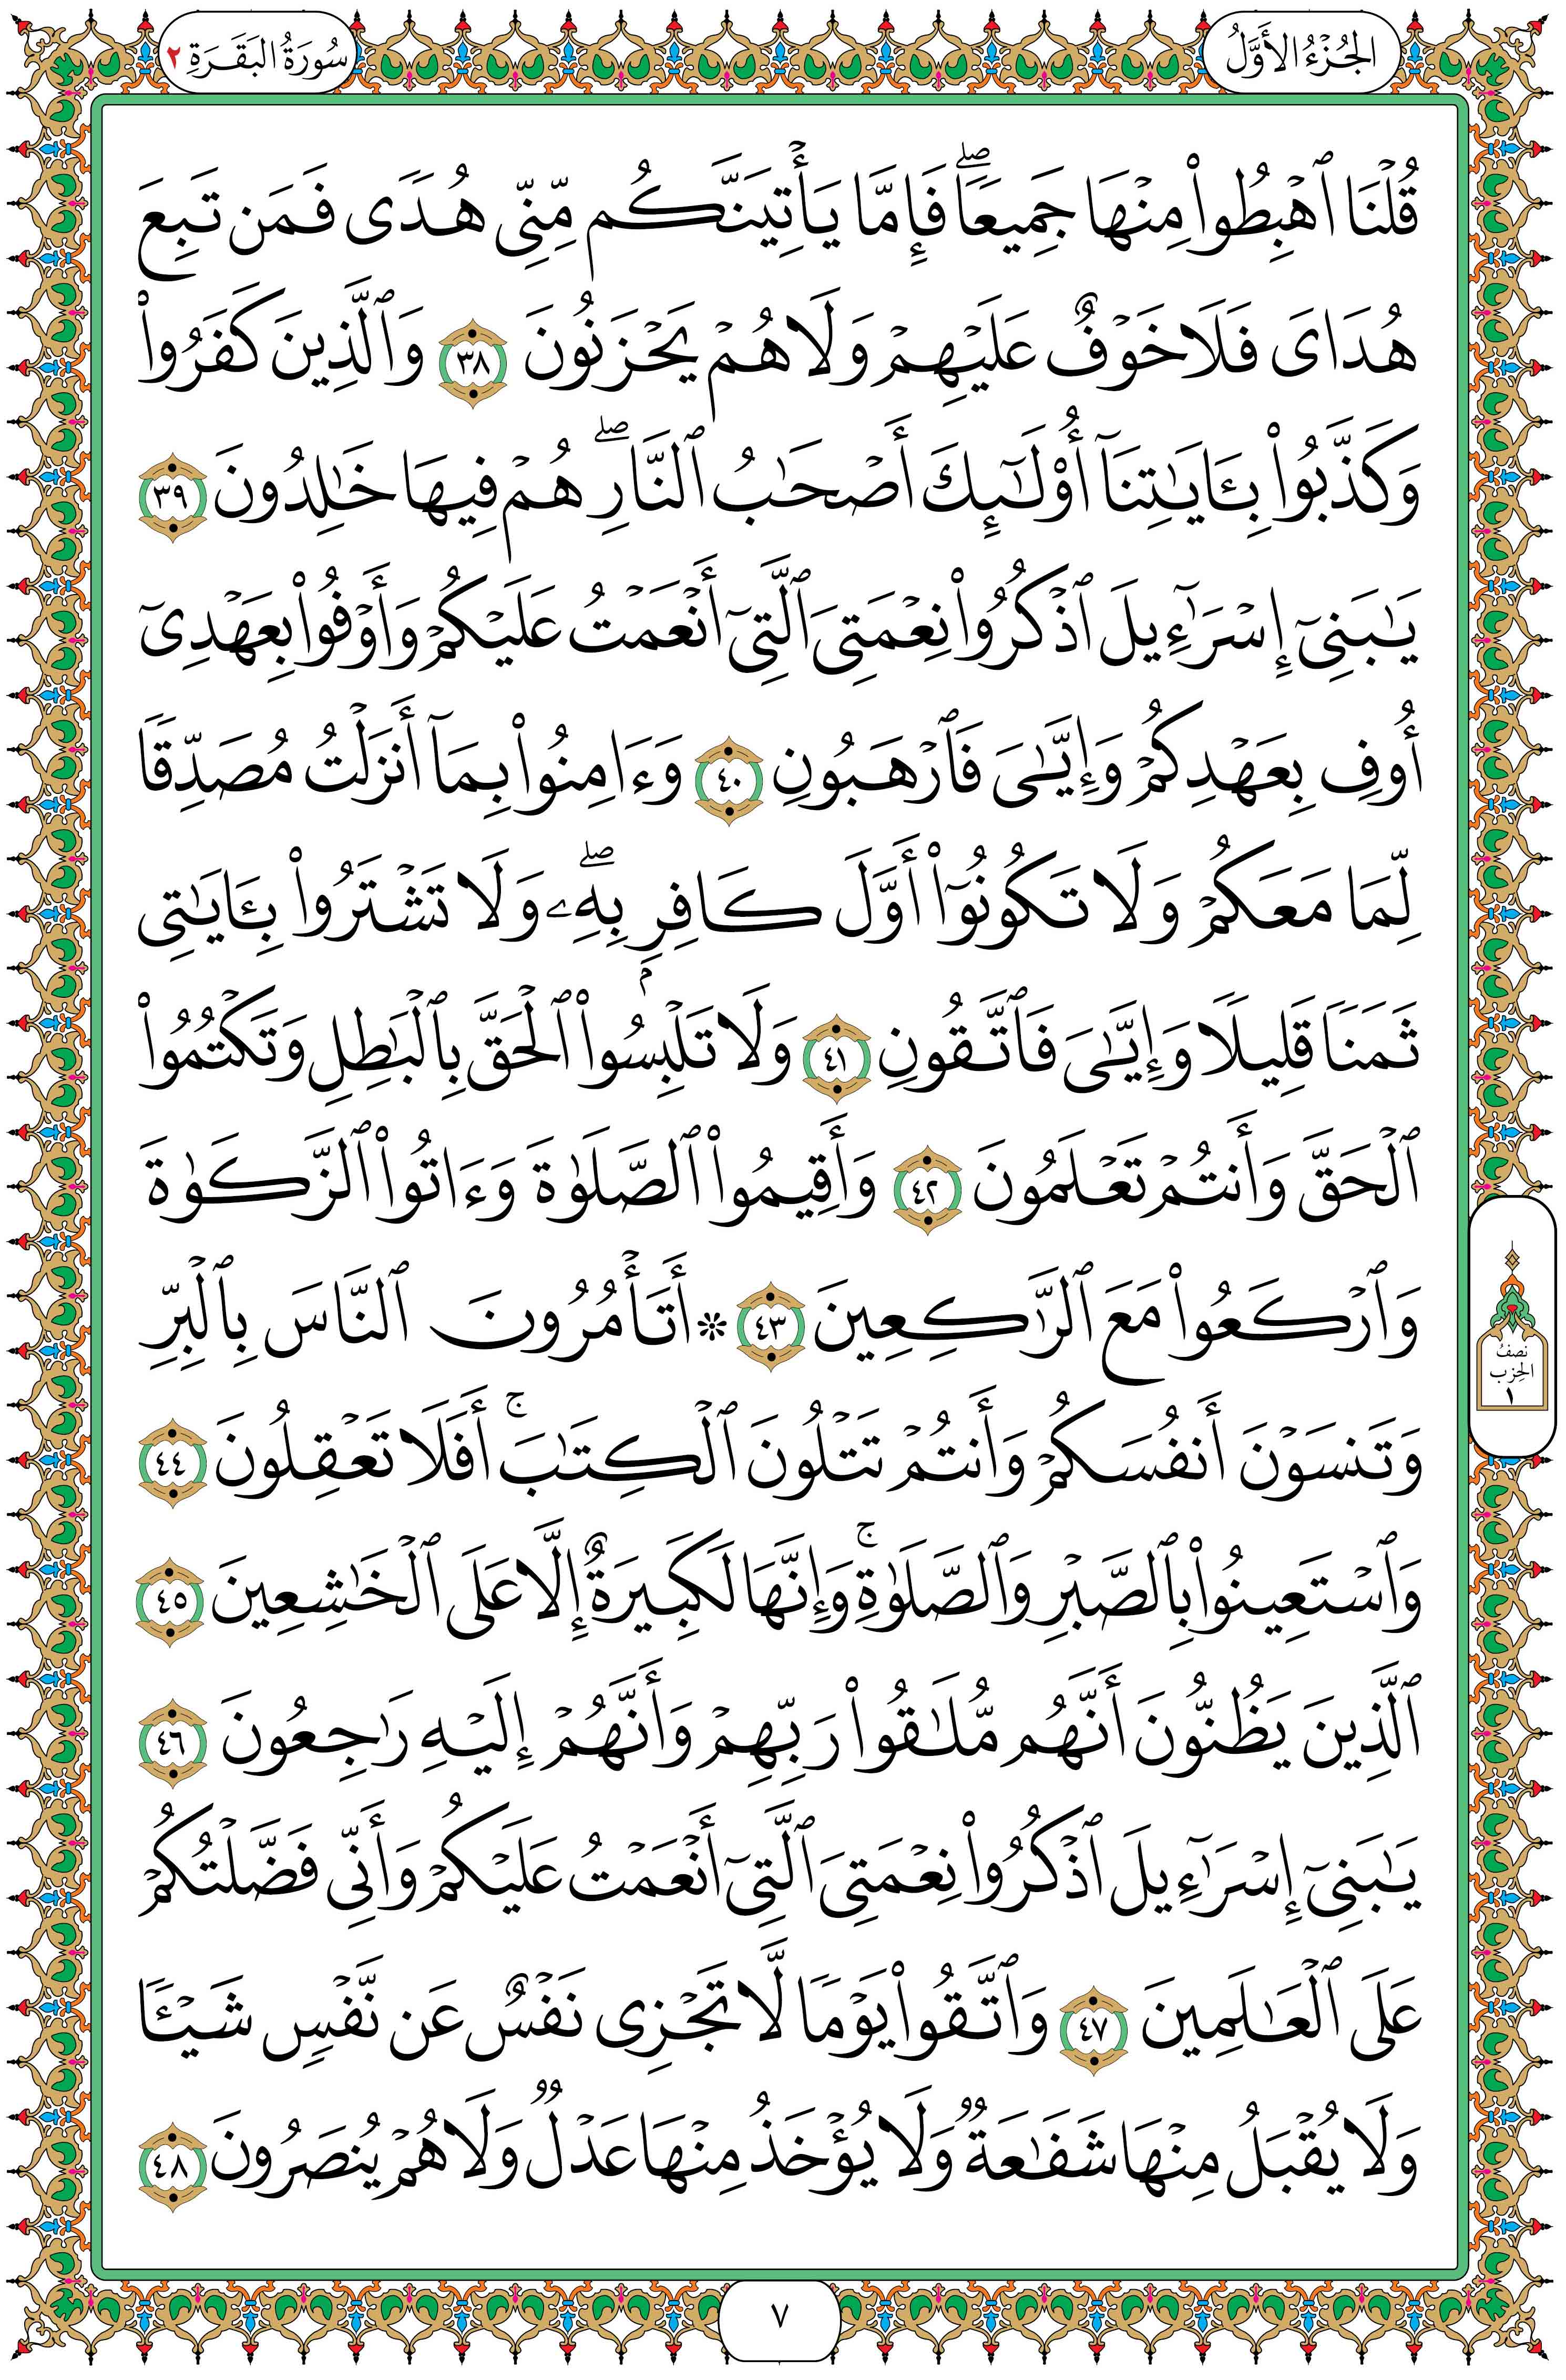 الجُزْءُ الأَوَّلُ
سُورَةُ البَقَرَةِ ٢
قُلْنَا ٱهْبِطُوا۟ مِنْهَا جَمِيعًۭا ۖ فَإِمَّا يَأْتِيَنَّكُم مِّنِّى هُدًۭى فَمَن تَبِعَ
هُدَاىَ فَلَا خَوْفٌ عَلَيْهِمْ وَلَا هُمْ يَحْزَنُونَ ٣٨ وَٱلَّذِينَ كَفَرُوا۟
وَكَذَّبُوا۟ بِـَٔايَـٰتِنَآ أُو۟لَـٰٓئِكَ أَصْحَـٰبُ ٱلنَّارِ ۖ هُمْ فِيهَا خَـٰلِدُونَ ٣٩
يَـٰبَنِىٓ إِسْرَٰٓءِيلَ ٱذْكُرُوا۟ نِعْمَتِىَ ٱلَّتِىٓ أَنْعَمْتُ عَلَيْكُمْ وَأَوْفُوا۟ بِعَهْدِىٓ
أُوفِ بِعَهْدِكُمْ وَإِيَّـٰىَ فَٱرْهَبُونِ ٤٠ وَءَامِنُوا۟ بِمَآ أَنزَلْتُ مُصَدِّقًۭا
لِّمَا مَعَكُمْ وَلَا تَكُونُوٓا۟ أَوَّلَ كَافِرٍۭ بِهِۦ ۖ وَلَا تَشْتَرُوا۟ بِـَٔايَـٰتِى
ثَمَنًۭا قَلِيلًۭا وَإِيَّـٰىَ فَٱتَّقُونِ ٤١ وَلَا تَلْبِسُوا۟ ٱلْحَقَّ بِٱلْبَـٰطِلِ وَتَكْتُمُوا۟
ٱلْحَقَّ وَأَنتُمْ تَعْلَمُونَ ٤٢ وَأَقِيمُوا۟ ٱلصَّلَوٰةَ وَءَاتُوا۟ ٱلزَّكَوٰةَ
وَٱرْكَعُوا۟ مَعَ ٱلرَّٰكِعِينَ ٤٣ ۞ أَتَأْمُرُونَ ٱلنَّاسَ بِٱلْبِرِّ
نصفُ
الحِزب
١
وَتَنسَوْنَ أَنفُسَكُمْ وَأَنتُمْ تَتْلُونَ ٱلْكِتَـٰبَ ۚ أَفَلَا تَعْقِلُونَ ٤٤
وَٱسْتَعِينُوا۟ بِٱلصَّبْرِ وَٱلصَّلَوٰةِ ۚ وَإِنَّهَا لَكَبِيرَةٌ إِلَّا عَلَى ٱلْخَـٰشِعِينَ ٤٥
ٱلَّذِينَ يَظُنُّونَ أَنَّهُم مُّلَـٰقُوا۟ رَبِّهِمْ وَأَنَّهُمْ إِلَيْهِ رَٰجِعُونَ ٤٦
يَـٰبَنِىٓ إِسْرَٰٓءِيلَ ٱذْكُرُوا۟ نِعْمَتِىَ ٱلَّتِىٓ أَنْعَمْتُ عَلَيْكُمْ وَأَنِّى فَضَّلْتُكُمْ
عَلَى ٱلْعَـٰلَمِينَ ٤٧ وَٱتَّقُوا۟ يَوْمًۭا لَّا تَجْزِى نَفْسٌ عَن نَّفْسٍۢ شَيْـًۭٔا
وَلَا يُقْبَلُ مِنْهَا شَفَـٰعَةٌۭ وَلَا يُؤْخَذُ مِنْهَا عَدْلٌۭ وَلَا هُمْ يُنصَرُونَ ٤٨
٧